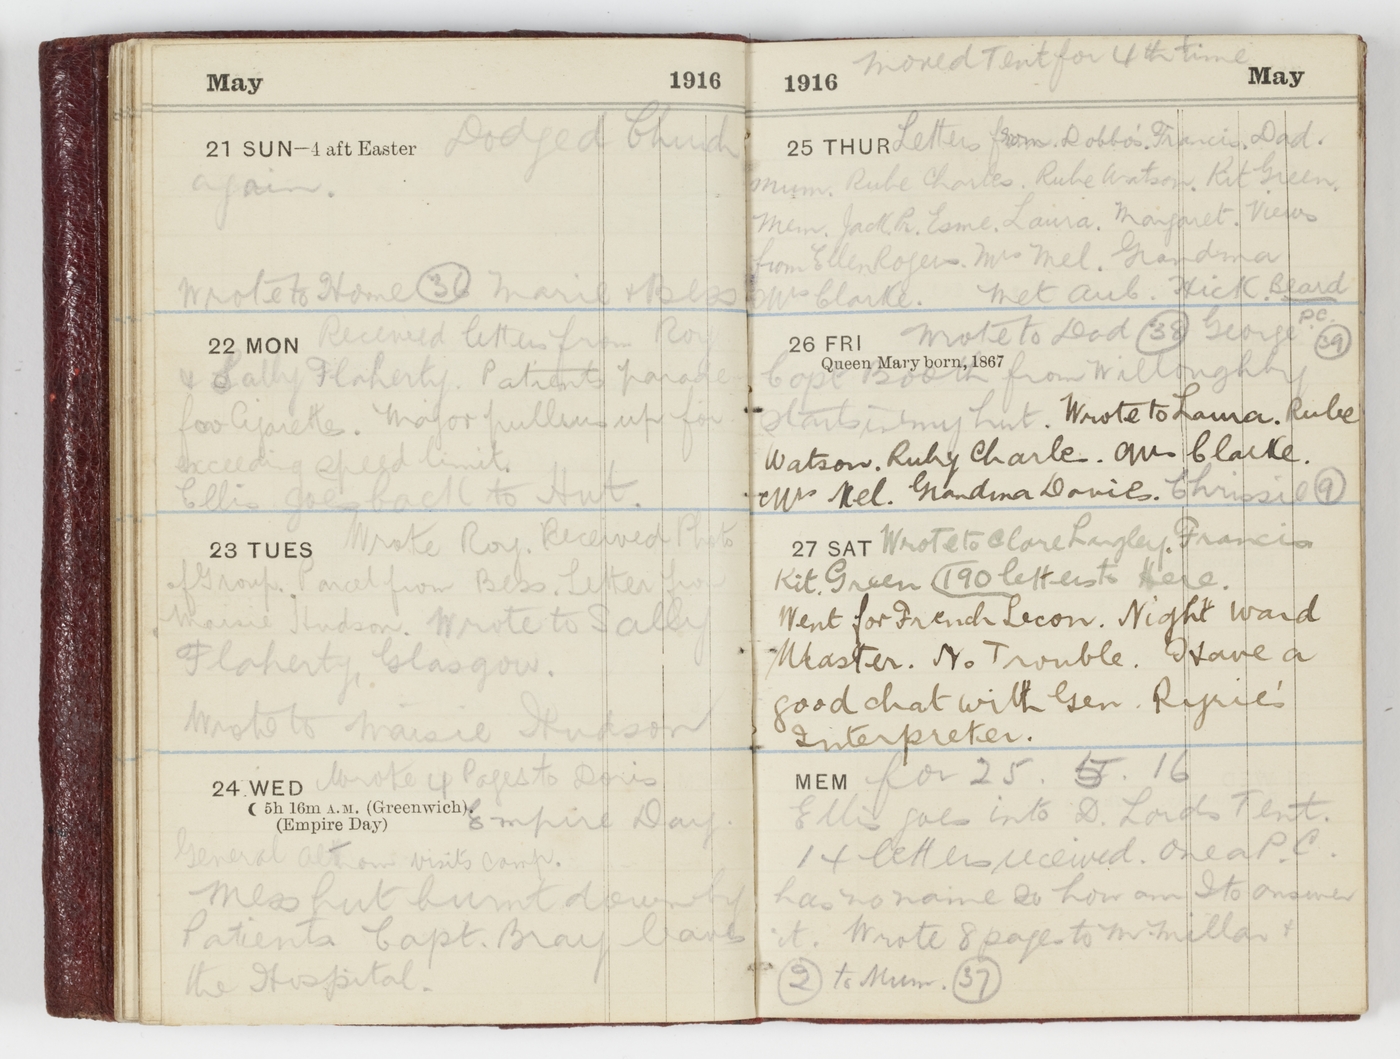 May 1916
21 SUN—4 aft Easter Dodged Church
again.
Wrote to Home (36) Marie & Bess
22 MON Received letters from Roy
& Sally Flaherty. Patients parade
for Cigarettes. Major pullens up for
exceeding speed limit.
Ellis goes back to Hut.
23 TUES Wrote Roy. Received Photo
of Group. Parcel from Bess. Letter from
Maisie Hudson. Wrote to Sally
Flaherty, Glasgow.
Wrote to Maisie Hudson
24 WED Wrote 4 Pages to Doris
☾ 5h 16m A.M. (Greenwich). Empire Day.
(Empire Day)
General visits camp.
Mess hut burnt down by
Patients Capt. Bray leaves
the Hospital.
Moved Tent for 4th time
1916 May
25 THUR Letters from. Dobbo's. Francis. Dad.
Mum. Rube Charles. Rube Watson. Kit Green.
Mem. Jack R. Esme. Laura. Margaret. Views
from Ellen Rogers. Mrs Mel. Grandma
Mrs Clarke. Met Aub. Hick. Beard
26 FRI Wrote to Dad (38) George P.C. (39)
Queen Mary born, 1867
Capt Booth from Willoughby
starts in my hut. Wrote to Laura. Rube
Watson. Ruby Charle. Mrs Clarke.
Mrs Mel. Grandma Davies. Chrissie (9)
27 SAT Wrote to Clare Langley. Francis
Kit. Green (190 letters to Here.
Went for French Lecon. Night Ward
Master. No Trouble. Have a
good chat with Gen. Ryrie's
Interpreter.
MEM for 25. 5. 16
Ellis goes into D. Lords Tent.
14 letters received. One a P.C.
has no name so how am I to answer
it. Wrote 8 pages to McMillan &
(2) to Mum. (37)